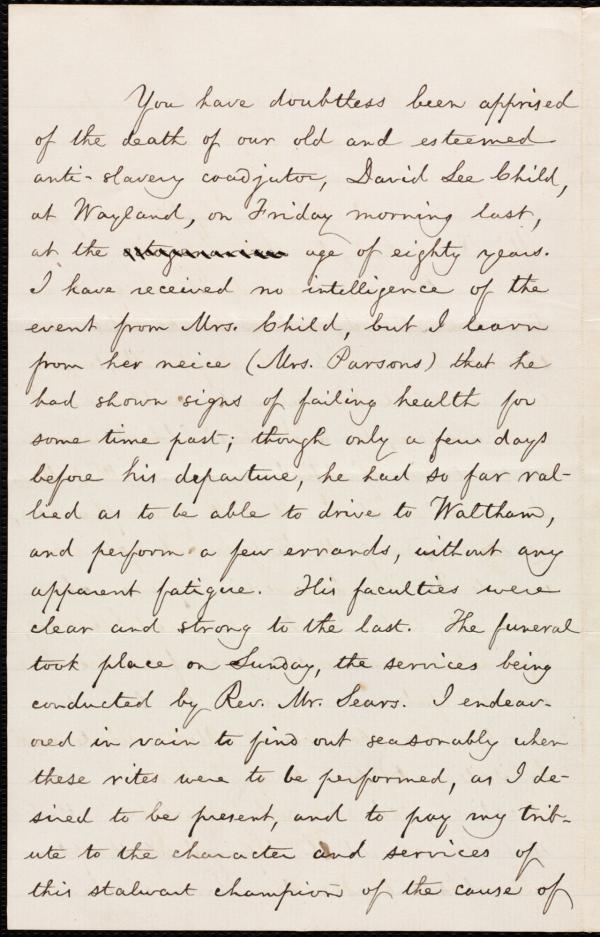 You have doubtless been apprised
of the death of our old and esteemed
anti-slavery coadjutor, David Lee Child,
at Wayland, on Friday morning last,
at the octogenarian age of eighty years.
I have received no intelligence of the
event from Mrs. Child, but I learn
from her neice (Mrs. Parsons) that he
had shown signs of failing health for
some time past; though only a few days
before his departure, he had so far ral-
lied as to be able to drive to Waltham,
and perform a few errands, without any
apparent fatigue. His faculties were
clear and strong to the last. The funeral
took place on Sunday, the services being
conducted by Rev. Mr. Sears. I endeav-
ored in vain to find out seasonably when
these rites were to be performed, as I de-
sired to be present, and to pay my trib-
ute to the character and services of
this stalwart champion of the cause of